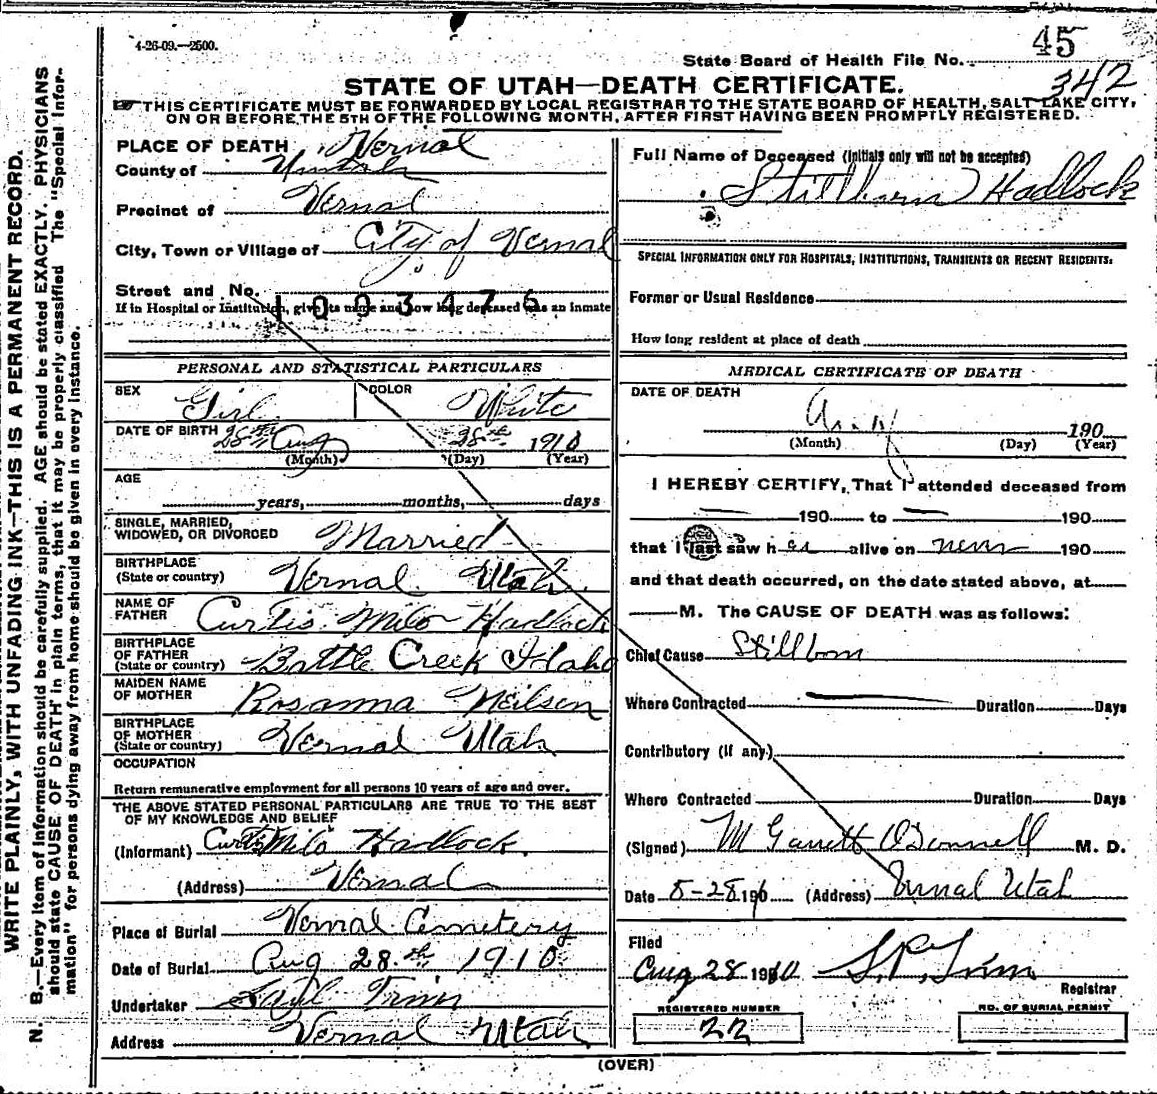 4-26-09.—2500.
45
State Board of Health File No.
342
STATE OF UTAH—DEATH CERTIFICATE.
THIS CERTIFICATE MUST BE FORWARDED BY LOCAL REGISTRAR TO THE STATE BOARD OF HEALTH, SALT LAKE CITY,
ON OR BEFORE THE 5TH OF THE FOLLOWING MONTH, AFTER FIRST HAVING BEEN PROMPTLY REGISTERED.
WRITE PLAINLY, WITH UNFADING INK—THIS IS A PERMANENT RECORD.
N. B.—Every item of information should be carefully supplied. AGE should be stated EXACTLY. PHYSICIANS
should state CAUSE OF DEATH in plain terms, that it may be properly classified. The "Special Infor-
mation" for persons dying away from home should be given in every instance.
PLACE OF DEATH Vernal
County of Uintah
Precinct of Vernal
City, Town or Village of City of Vernal
Street and No.
1003476
If in Hospital or Institution, give its name and how long deceased was an inmate
PERSONAL AND STATISTICAL PARTICULARS
SEX Girl COLOR White
DATE OF BIRTH 28th Aug 28th 1910
(Month) (Day) (Year)
AGE
years, months, days
SINGLE, MARRIED,
WIDOWED, OR DIVORCED Married
BIRTHPLACE
(State or country) Vernal Utah.
NAME OF
FATHER Curtis Milo Hadlock
BIRTHPLACE
OF FATHER
(State or country) Battle Creek Idaho
MAIDEN NAME
OF MOTHER Rosanna Neilsen
BIRTHPLACE
OF MOTHER
(State or country) Vernal Utah
OCCUPATION
Return remunerative employment for all persons 10 years of age and over.
THE ABOVE STATED PERSONAL PARTICULARS ARE TRUE TO THE BEST
OF MY KNOWLEDGE AND BELIEF
(Informant) Curtis Milo Hadlock.
(Address) Vernal
Place of Burial Vernal Cemetery
Date of Burial Aug 28th 1910
Undertaker Trim
Address Vernal Utah
Full Name of Deceased (Initials only will not be accepted)
Stillborn Hadlock
SPECIAL INFORMATION ONLY FOR HOSPITALS, INSTITUTIONS, TRANSIENTS OR RECENT RESIDENTS.
Former or Usual Residence
How long resident at place of death
MEDICAL CERTIFICATE OF DEATH
DATE OF DEATH
Aug 190
(Month) (Day) (Year)
I HEREBY CERTIFY, That I attended deceased from
— 190 to — 190
that I last saw her alive on never 190
and that death occurred, on the date stated above, at
M. The CAUSE OF DEATH was as follows:
Chief Cause Stillborn
Where Contracted — Duration Days
Contributory (if any)
Where Contracted Duration Days
(Signed) M Garrett O'Donnell M. D.
Date 8-28 1910 (Address) Vernal Utah
Filed
Aug 28 1910 S. P. Trim
Registrar
REGISTERED NUMBER
22
NO. OF BURIAL PERMIT
(OVER)